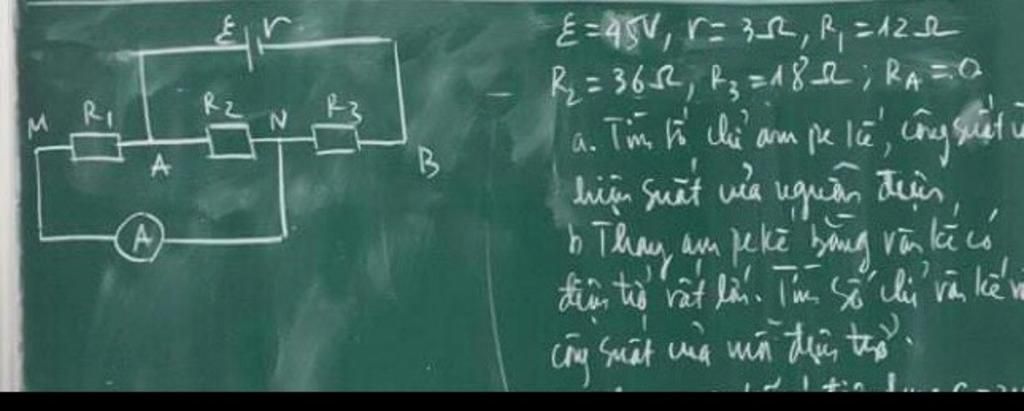 ε r
M R₁ R₂ N R₃
A B
A
ε = 45V, r = 3Ω, R₁ = 12Ω
R₂ = 36Ω, R₃ = 18Ω; R_A = 0
a. Tìm số chỉ ampe kế, công suất
hiệu suất của nguồn điện,
b Thay ampe kế bằng vôn kế có
điện trở rất lớn. Tìm số chỉ vôn kế
công suất của mỗi điện trở.